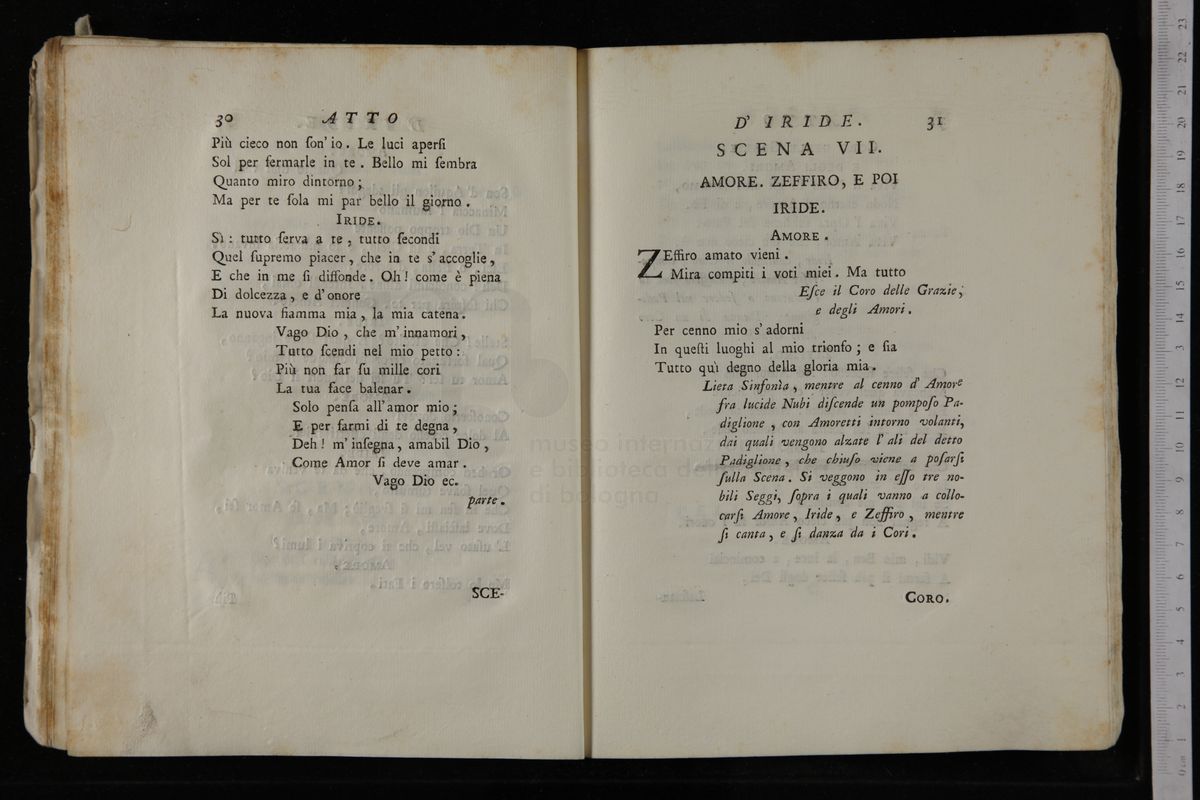 30 ATTO
Più cieco non ſon' io. Le luci aperſi
Sol per fermarle in te. Bello mi ſembra
Quanto miro dintorno;
Ma per te ſola mi par bello il giorno.
IRIDE.
Sì: tutto ſerva a te, tutto ſecondi
Quel ſupremo piacer, che in te s' accoglie,
E che in me ſi diffonde. Oh! come è piena
Di dolcezza, e d' onore
La nuova fiamma mia, la mia catena.
Vago Dio, che m' innamori,
Tutto ſcendi nel mio petto:
Più non far ſu mille cori
La tua face balenar.
Solo penſa all' amor mio;
E per farmi di te degna,
Deh! m' inſegna, amabil Dio,
Come Amor ſi deve amar.
Vago Dio ec.
parte.
SCE-
D' IRIDE. 31
SCENA VII.
AMORE. ZEFFIRO, E POI
IRIDE.
AMORE.
ZEffiro amato vieni.
Mira compiti i voti miei. Ma tutto
Eſce il Coro delle Grazie,
e degli Amori.
Per cenno mio s' adorni
In queſti luoghi al mio trionfo; e ſia
Tutto quì degno della gloria mia.
Lieta Sinfonìa, mentre al cenno d' Amore
fra lucide Nubi diſcende un pompoſo Pa-
diglione, con Amoretti intorno volanti,
dai quali vengono alzate l' ali del detto
Padiglione, che chiuſo viene a poſarſi
ſulla Scena. Si veggono in eſſo tre no-
bili Seggi, ſopra i quali vanno a collo-
carſi Amore, Iride, e Zeffiro, mentre
ſi canta, e ſi danza da i Cori.
CORO.
museo internaz
e biblioteca de
di bologna